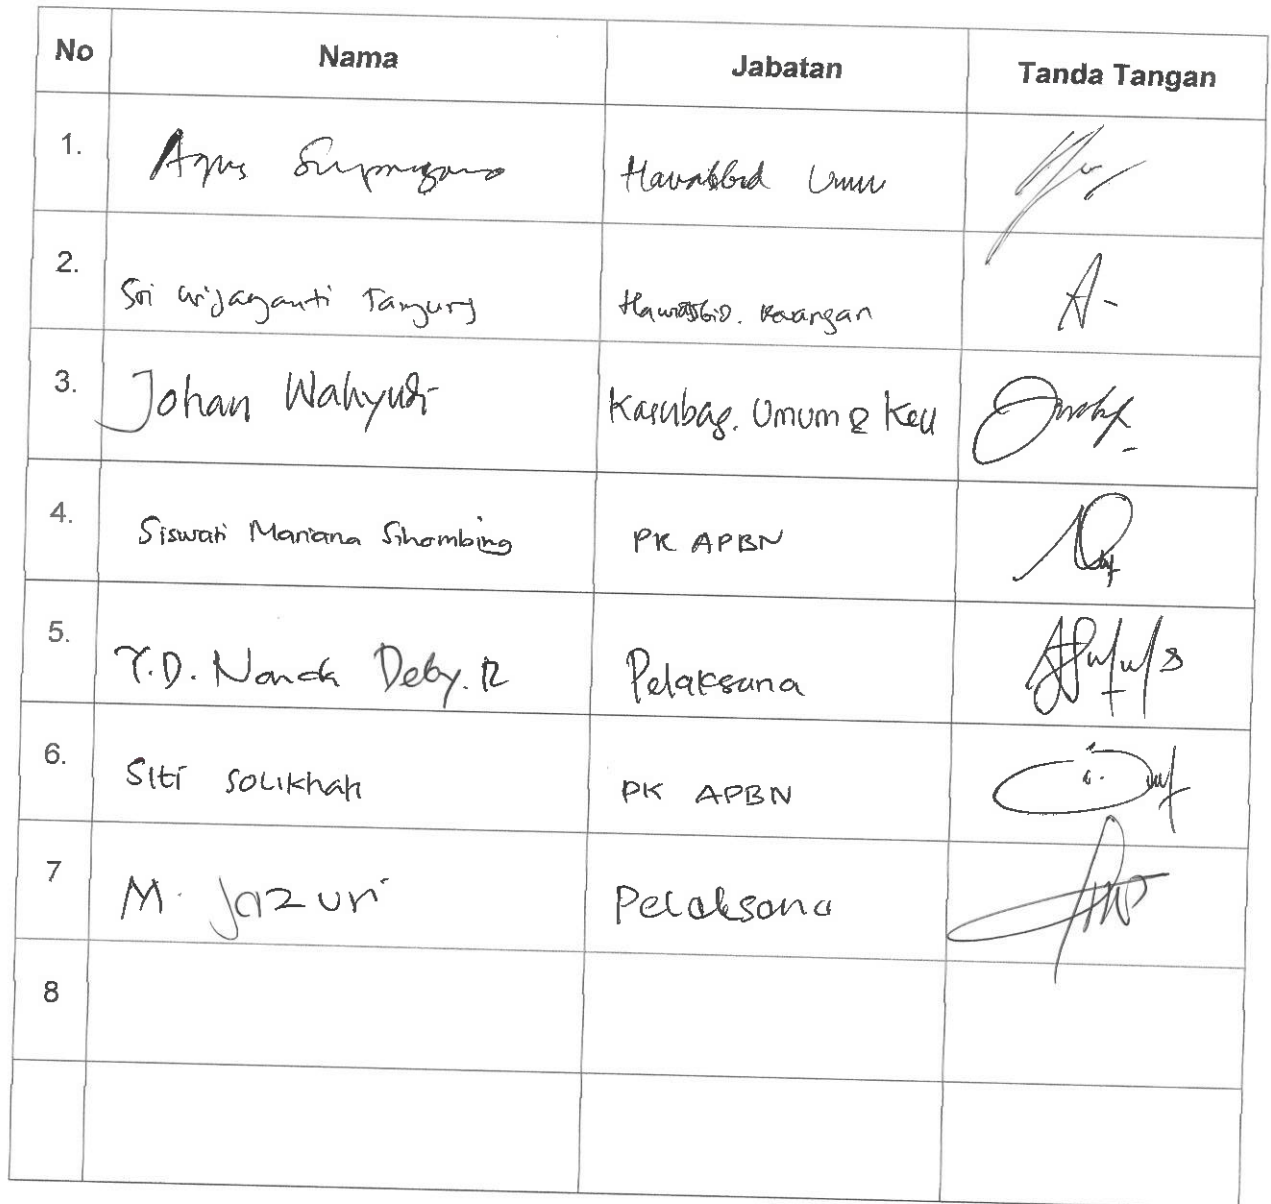 No Nama Jabatan Tanda Tangan
1. Agus Hawasbid Umum
2. Sri Wijayanti Tanjung Hawasbid. Keuangan
3. Johan Wahyudi Kasubbag. Umum & Keu
4. Siswati Mariana Sihombing PK APBN
5. Y.D. Nanda Deby. R Pelaksana
6. Siti SOLIKHAH PK APBN
7 M. Jazuri Pelaksana
8